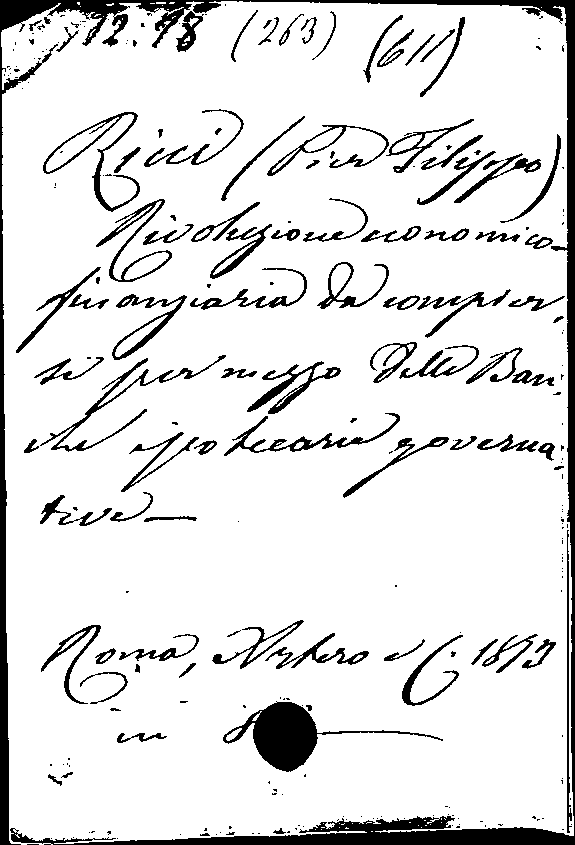 12.98 (263) (611)
Ricci (Pier Filippo)
Rivoluzione economico-
finanziaria da compier-
si per mezzo delle Ban-
che ipotecarie governa-
tive—
Roma, Artero e C. 1873
in 8